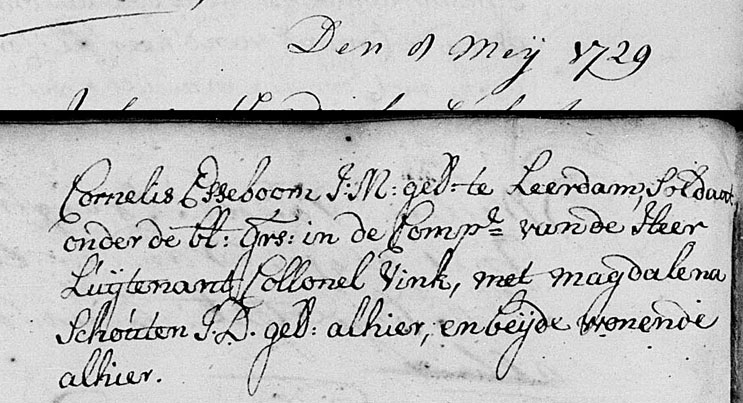 Den 8 Meÿ 1729
Cornelis Esseboom J:M: geb: te Leerdam, Soldaat,
onder de bl: Grs: in de Compe van de Heer
Luÿtenant Collonel Vink, met Magdalena
Schouten J.D. geb: alhier, en beÿde wonende
alhier.